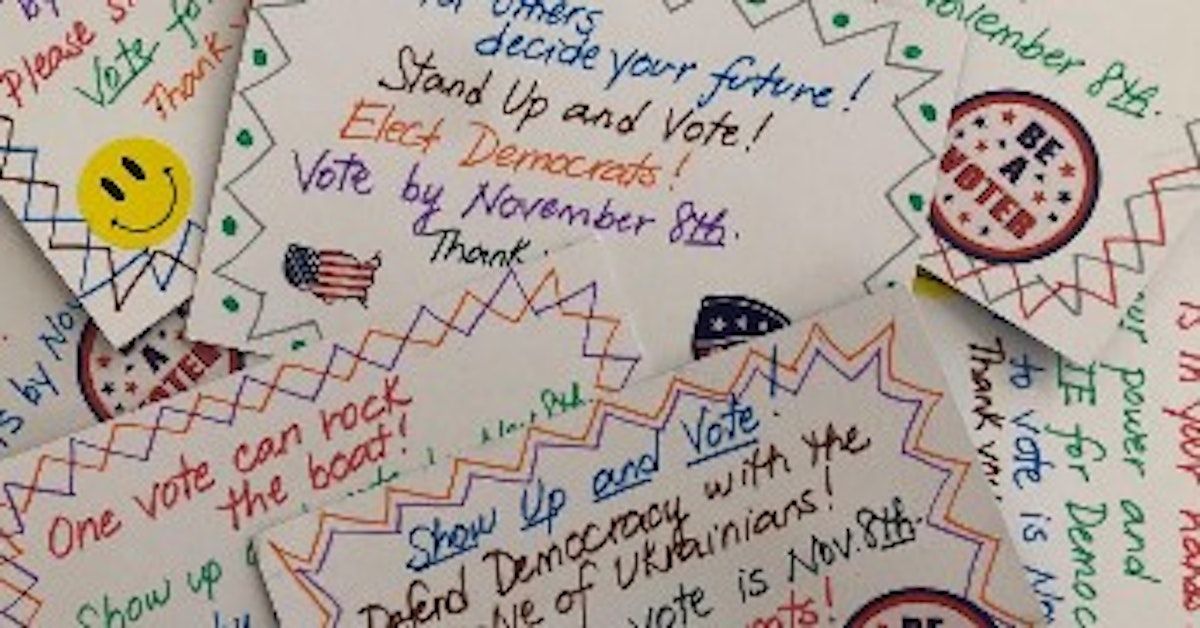 Please
Vote for
Thank
for others
decide your future!
Stand Up and Vote!
Elect Democrats!
Vote by November 8th.
Thank
November 8th.
BE
A
VOTER
by No
A
VOTER
One vote can rock
the boat!
Show up
by
8th.
Show Up and Vote!
Defend Democracy with the
of Ukrainians!
vote is Nov. 8th.
BE
your power and
for Democ
to vote is
Thank you
is in your